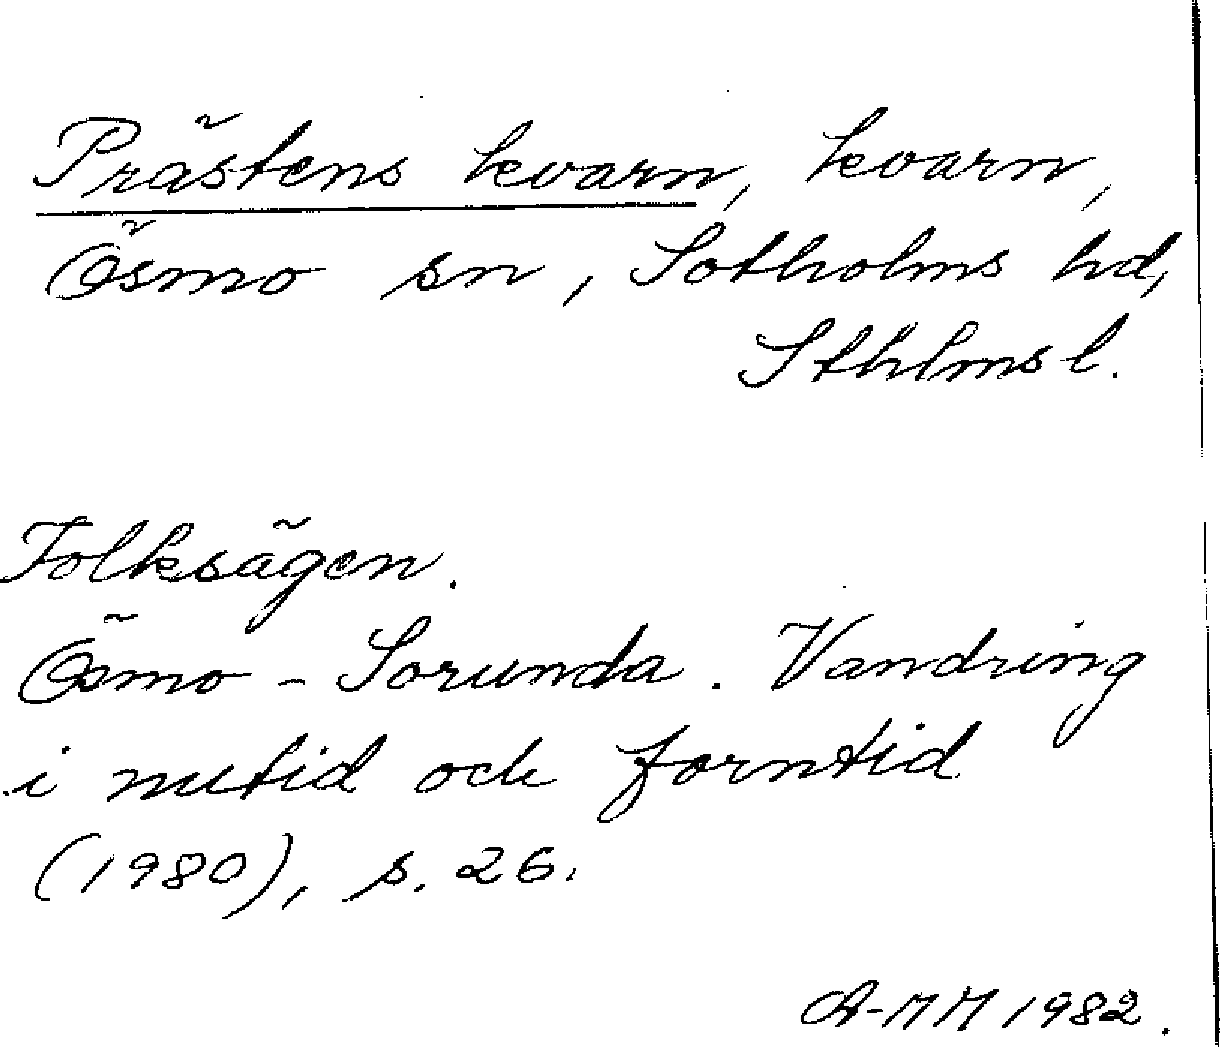 Prästens kvarn, kvarn,
Ösmo sn, Sotholms hd,
Sthlms l.
Folksägen.
Ösmo - Sorunda. Vandring
i nutid och forntid
(1980), s. 26.
A-MM 1982.